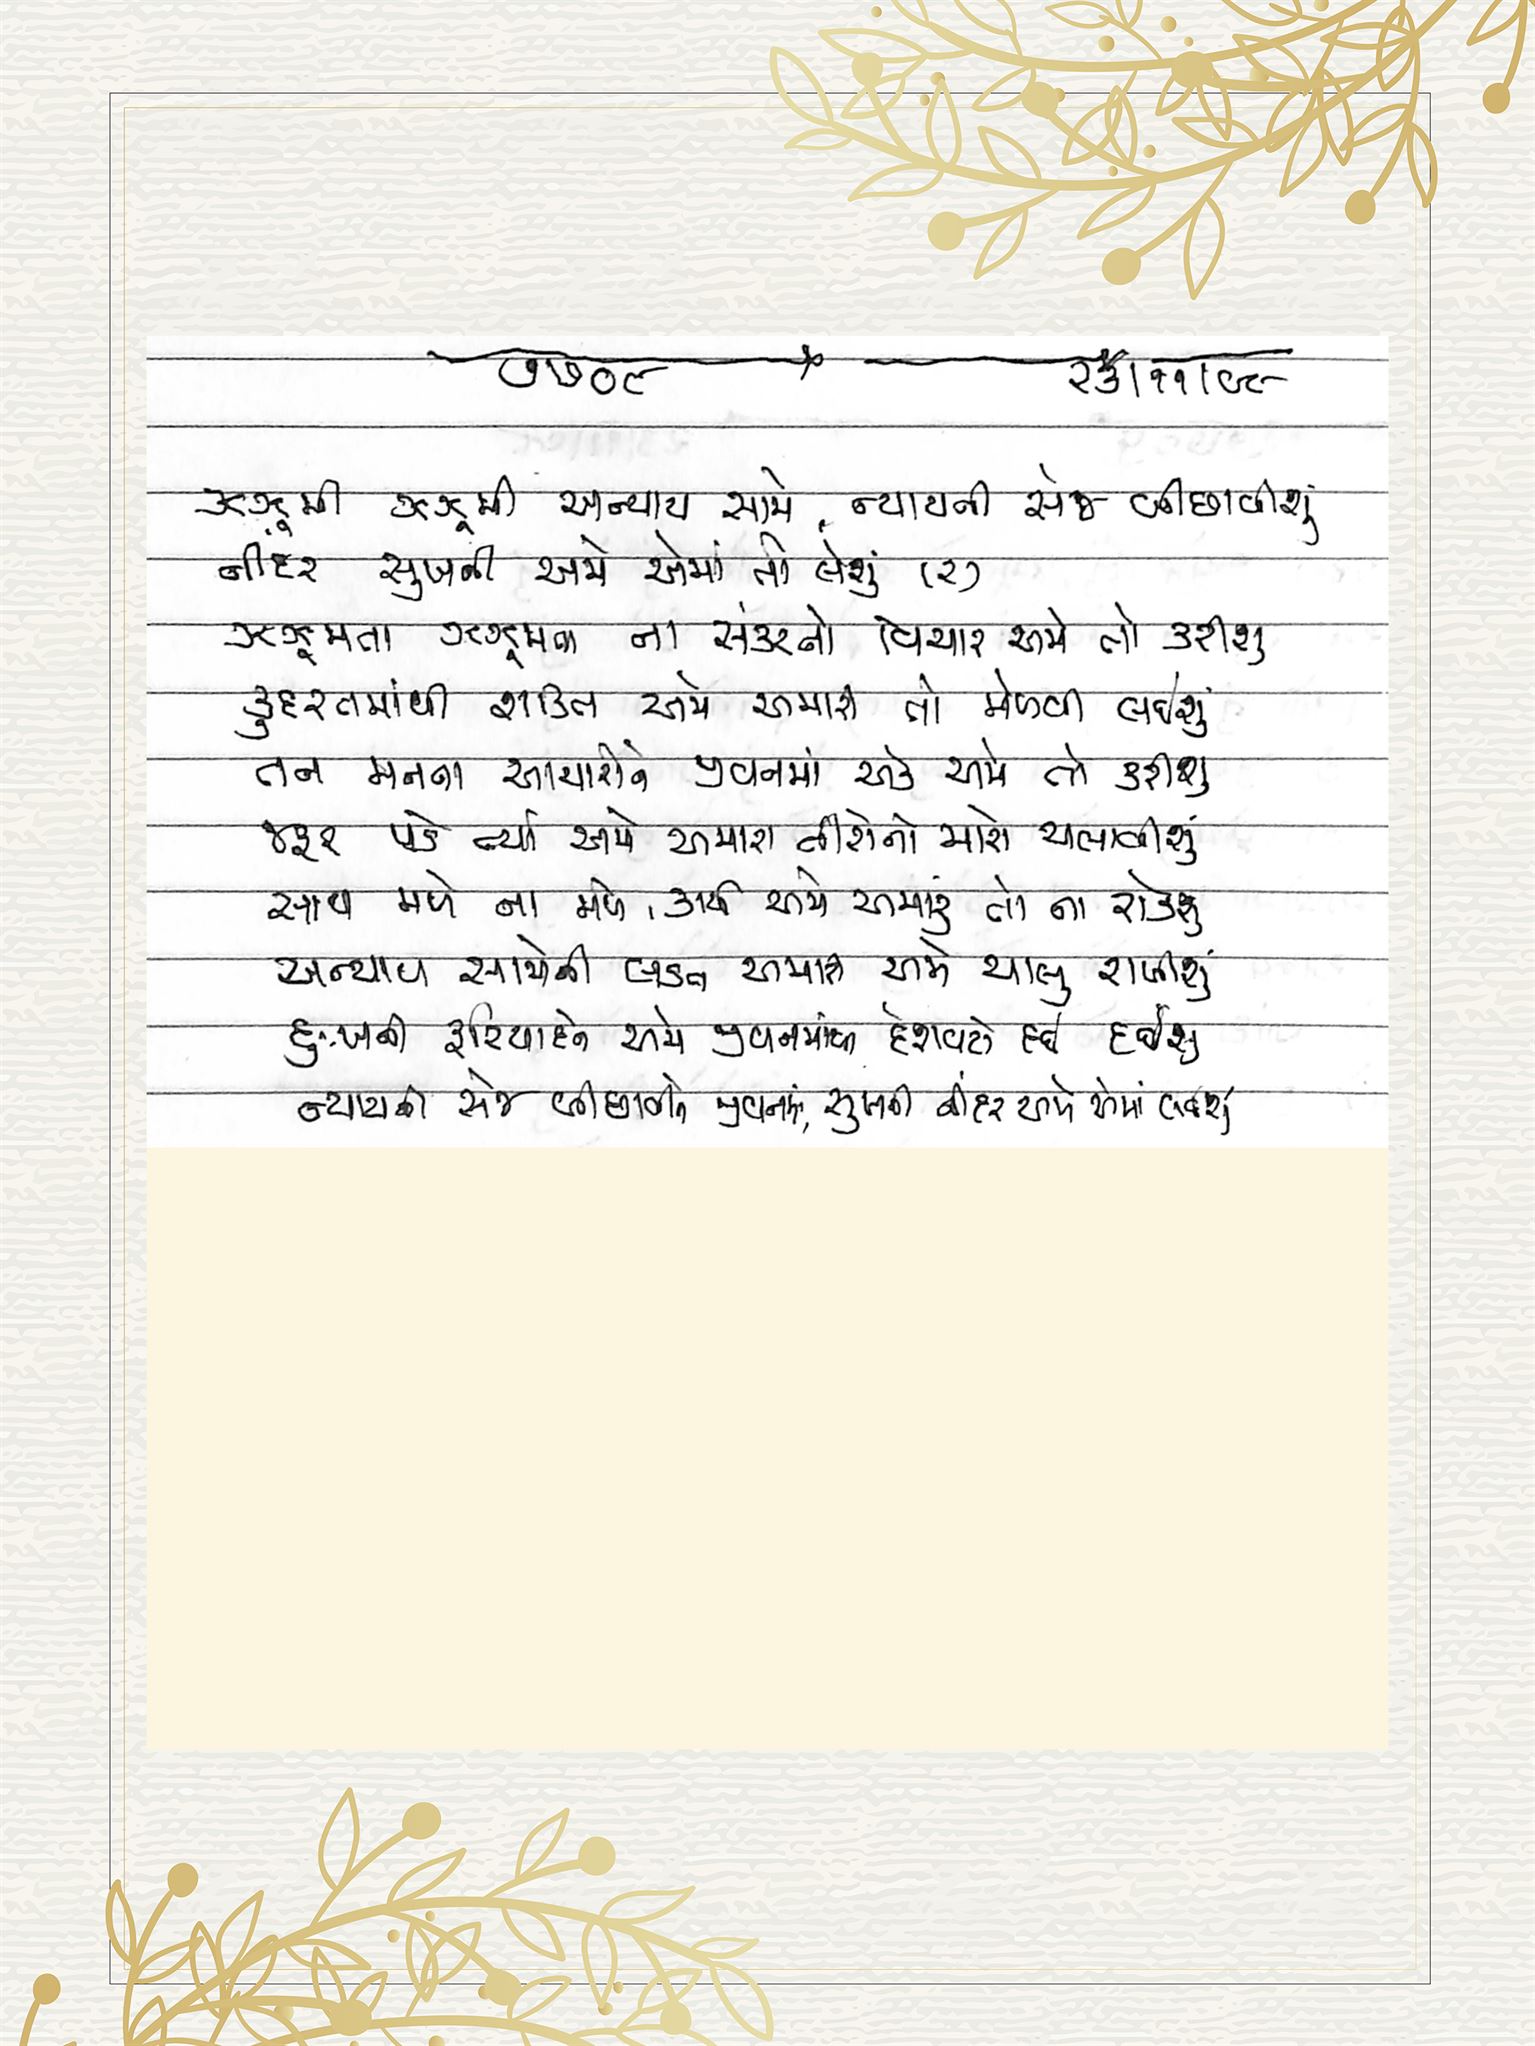 ૭૫૭૦૯ ૨૩/૧૧/૯૮
ઝઝૂમી ઝઝૂમી અન્યાય સામે, ન્યાયની સેજ બીછાવીશું
નીંદર સુખની અમે એમાં તો લેશું (૨)
ઝઝૂમતા ઝઝૂમતા ના સંહારનો વિચાર અમે તો કરીશું
કુદરતમાંથી શક્તિ અમે અમારી તો મેળવી લઈશું
તન મનના આચારોને જીવનમાં એક અમે તો કરીશું
જરૂર પડે ત્યાં અમે અમારા તીરોનો મારો ચલાવીશું
સાથ મળે ના મળે, કાર્ય અમે અમારું તો ના રોકીશું
અન્યાય સામેની લડત અમારી અમે ચાલુ રાખીશું
દુઃખની ફરિયાદને અમે જીવનમાંથી દેશવટો દઈ દઈશું
ન્યાયની સેજ બીછાવીને જીવનમાં, સુખની નીંદર અમે એમાં લઈશું